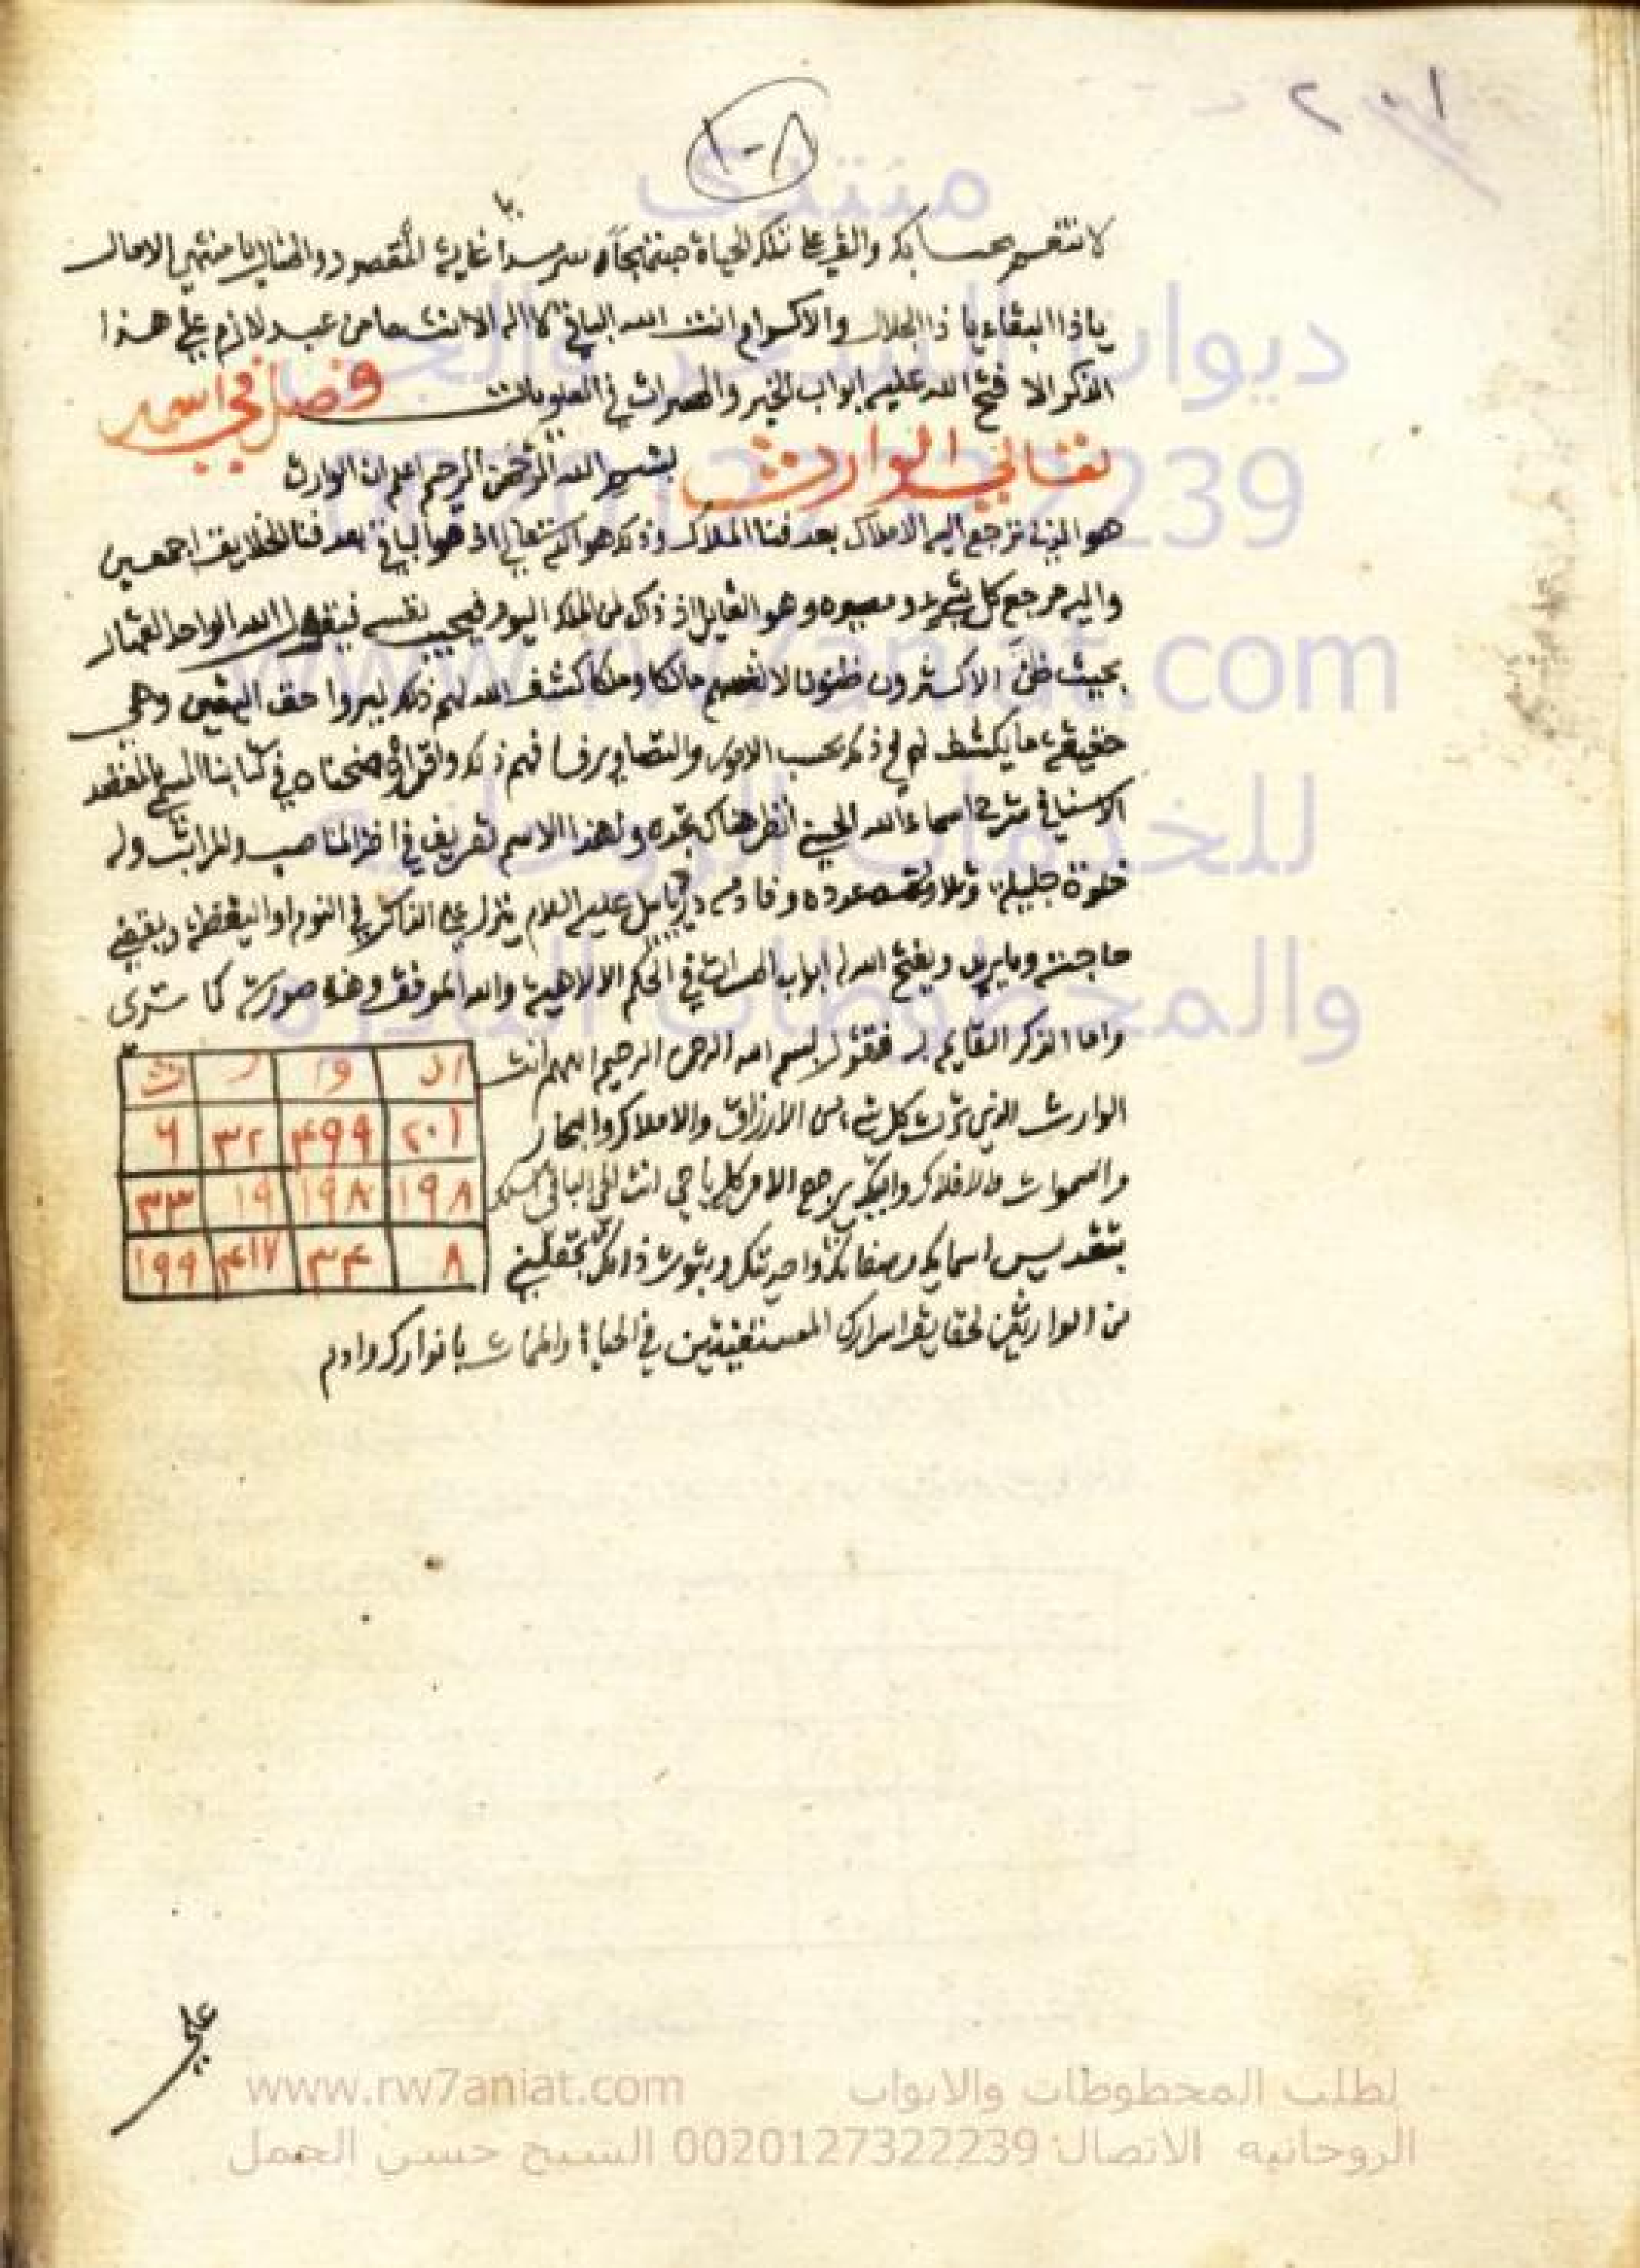 ٢٠١
١٠٨
لا تنقسم بحساب والقي علي تلك الحياة سرمدا غاية المقصود والمنال يا منتهى الامال
يا ذا البقاء يا ذا الجلال والاكرام انت الله الباقي لا اله الا انت ما من عبد لازم على هذا
الذكر الا فتح الله عليه ابواب الخير والمسرات في العلويات فصل في اسمه
تعالى الوارث بسم الله الرحمن الرحيم اعلم ان الوارث
هو الذي ترجع اليه الاملاك بعد فنا الملاك وذلك هو الله تعالى اذ هو الباقي بعد فنا الخلايق اجمعين
واليه مرجع كل شيء ومصيره وهو القايل اذ ذاك لمن الملك اليوم فيجيب نفسه فيقول لله الواحد القهار
بحيث ظن الاكثرون ظنونا لانفسهم مالكا وملكا كشف الله لهم ذلك ليروا حق اليقين وهي
حقيقة ما يكشف لهم في ذلك بحسب الامور فافهم ذلك وقد اوضحناه في كتابنا المسمى
في شرح اسماء الله الحسنى انظر هناك تجده ولهذا الاسم تصريف في اخذ المناصب والمراتب وله
خلوة جليلة وتلاوته عدده وخادمه عليه السلام ينزل على الذاكر في النوم او اليقظة ويقضي
حاجته وما يريد ويفتح الله له ابواب المسرات في الحكم الالاهية والله الموفق وهذه صورته كما ترى
واما الذكر القايم به فتقول بسم الله الرحمن الرحيم اللهم انت
الوارث الذي ترث كل شيء من الارزاق والاملاك والبحار
والسموات والافلاك واليك يرجع الامر كله يا حي انت الحي الباقي
بتقديس اسمايك وصفاتك واحديتك وثبوت ذاتك تجعلني
من الوارثين لحقايق اسرارك المستفيدين في الحياة والممات بانوارك وادم
ال وا ر ث
٢٠١ ٤٩٩ ٣٢ ٦
١٩٨ ١٩٨ ١٩ ٣٣
٨ ٣٤ ٤١٧ ١٩٩
علي
منتدى
ديوان
2239
www.rw7aniat.com
للخدمات الروحانيه
والمخطوطات النادره
لطلب المخطوطات والابواب www.rw7aniat.com
الروحانيه الاتصال 0020127322239 الشيخ حسن الجمل